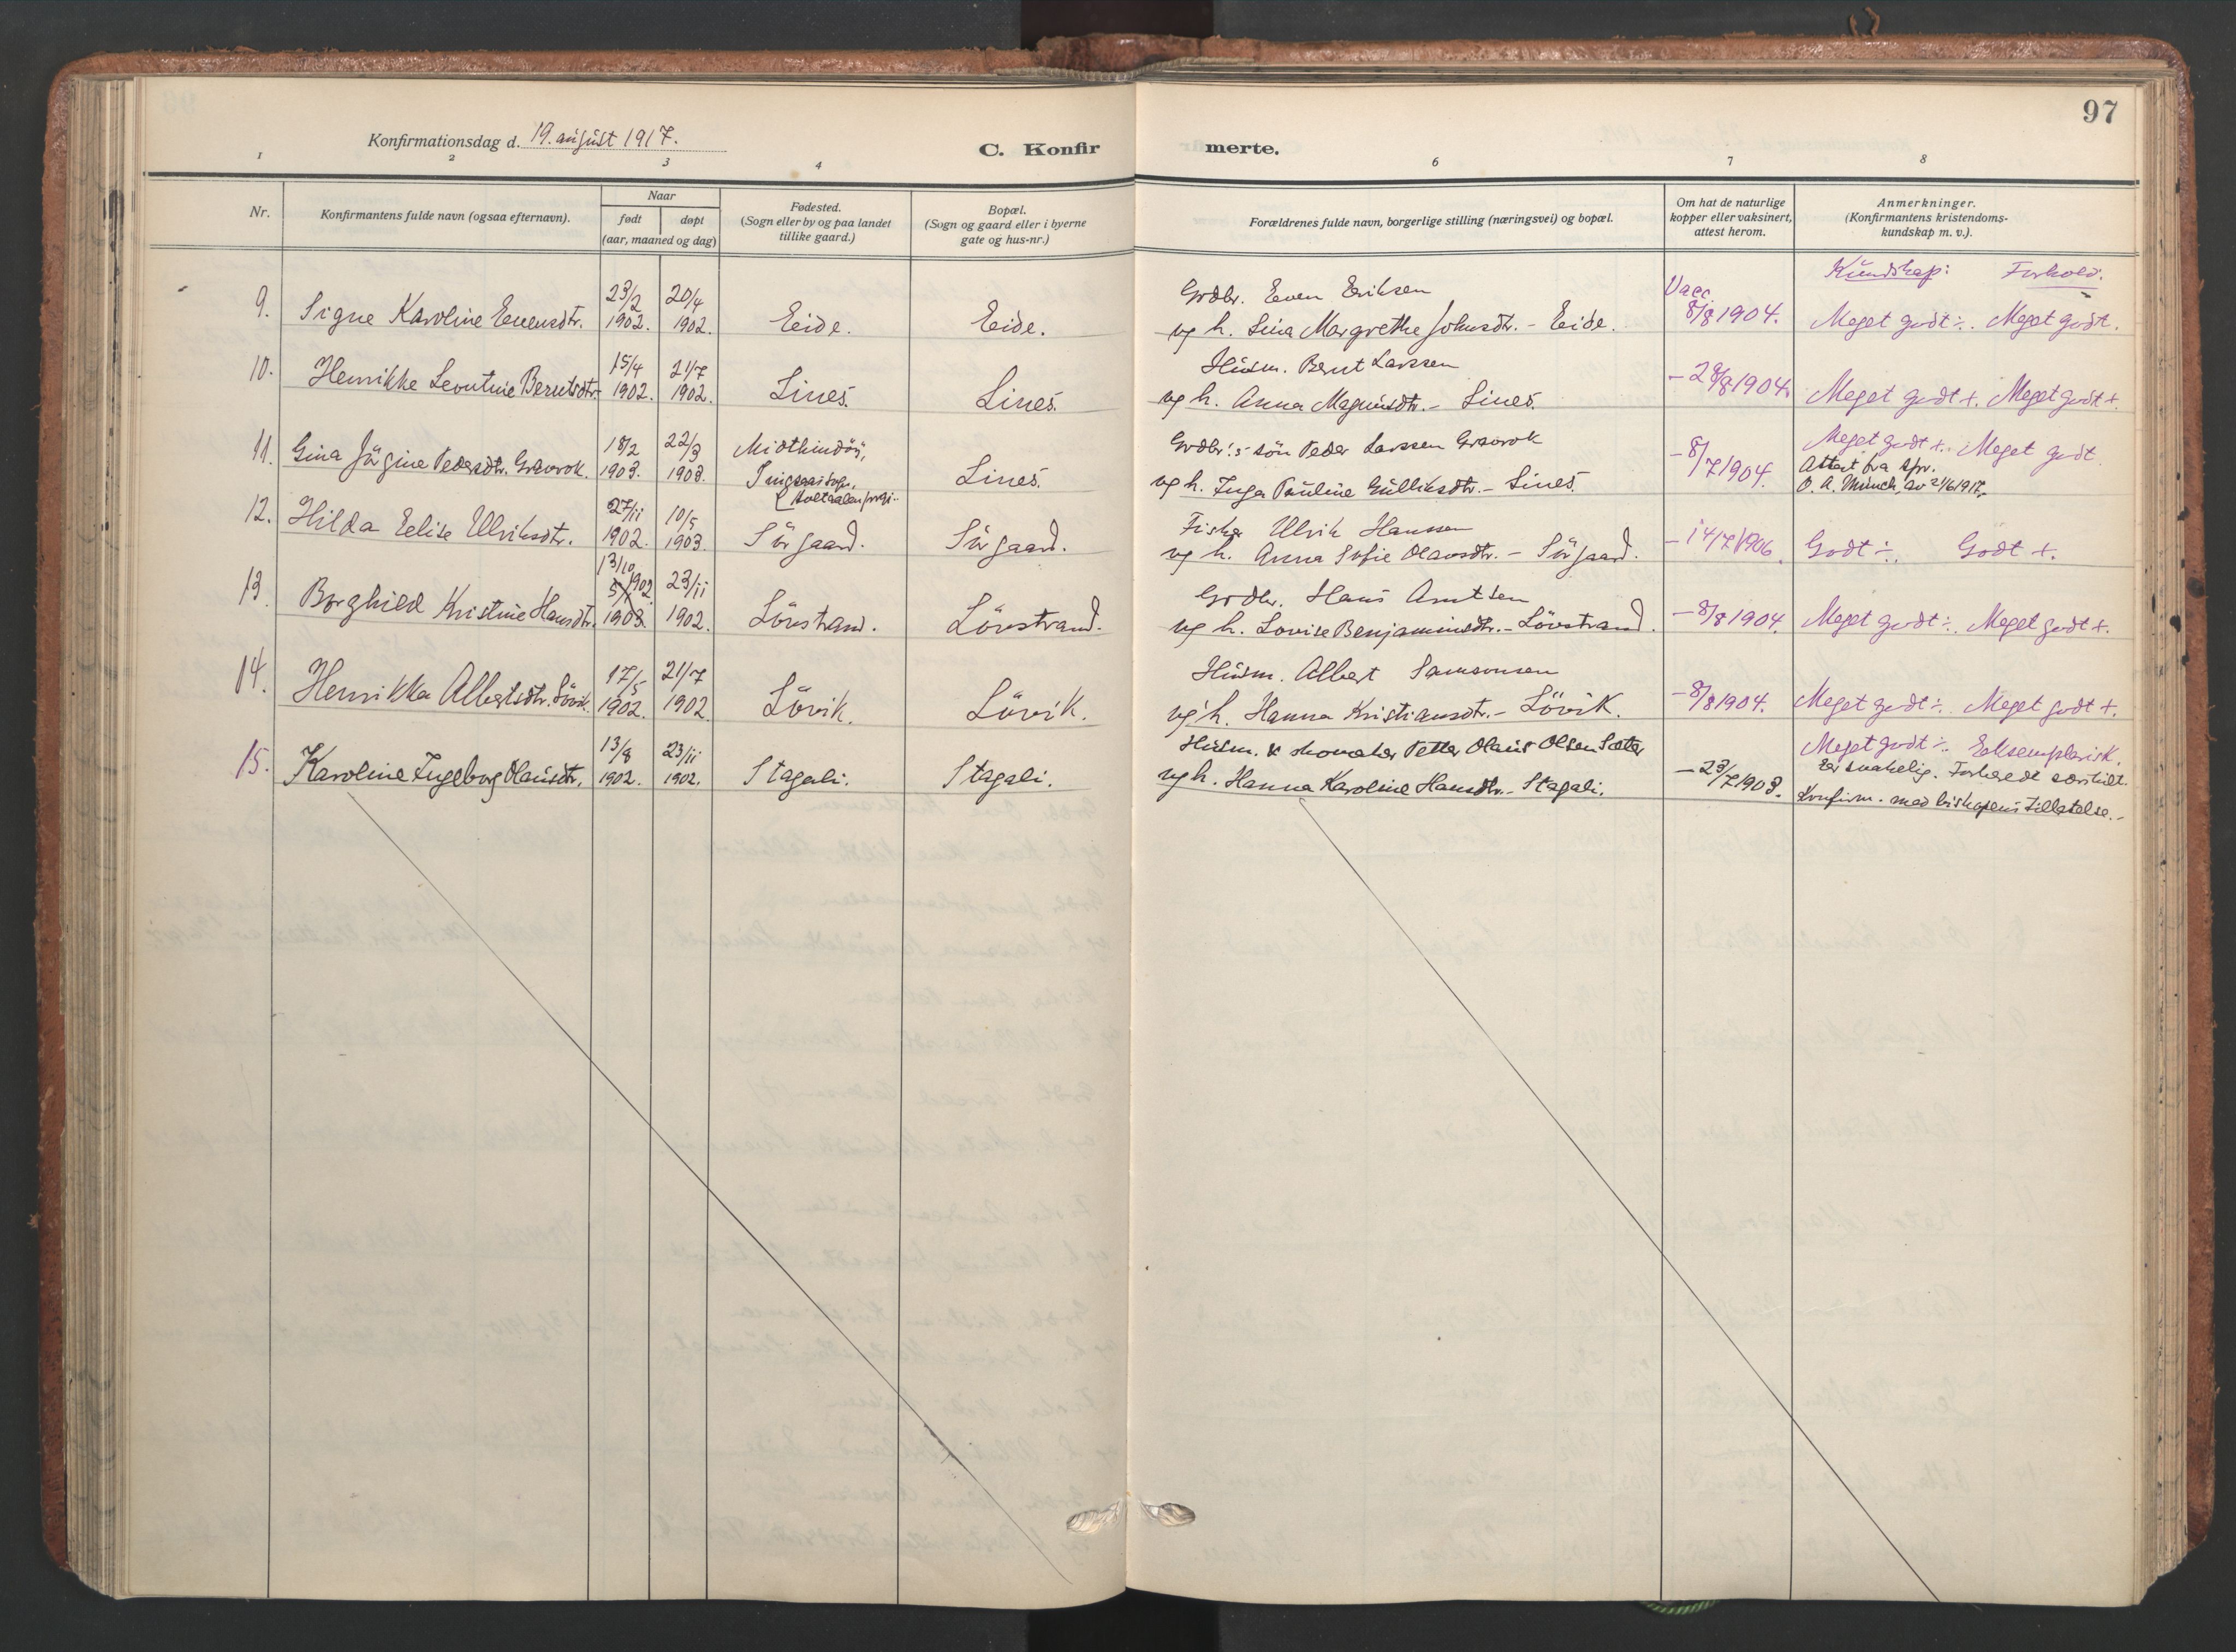 97
Konfirmationsdag d. 19. august 1917.
C. Konfir merte.
1 2 3 4 6 7 8
Nr.
Konfirmantens fulde navn (ogsaa efternavn).
Naar
født døpt
(aar, maaned og dag)
Fødested.
(Sogn eller by og paa landet
tillike gaard.)
Bopæl.
(Sogn og gaard eller i byerne
gate og hus-nr.)
Forældrenes fulde navn, borgerlige stilling (næringsvei) og bopæl.
Om hat de naturlige
kopper eller vaksinert,
attest herom.
Anmerkninger.
(Konfirmantens kristendoms-
kundskap m. v.).
Kundskap: Forhold.
9. 23/2 20/4 Grdbr. Even Eriksen Vacc
Signe Karoline Evensdtr. 1902. 1902. Eide. Eide. og h. Lina Margrethe Johnsdtr. - Eide. 8/8 1904. Meget godt ÷. Meget godt.
10. 15/4 21/7 Husm. Bernt Larssen
Henrikke Leontine Berntsdtr. 1902. 1902. Lines. Lines. og h. Anna Magnusdtr. - Lines. - 28/8 1904. Meget godt +. Meget godt +.
11. 18/2 22/3 Midthindöy, Grdbr.'s sön Peder Larssen Gravrok - 8/7 1904. Meget godt +. Meget godt.
Gina Jörgine Pedersdtr. Gravrok. 1903. 1903. Lines. og h. Inga Pauline Gulliksdtr. - Lines. Attest fra spr.
O. A. Munch, av 21/6 1917.
12. 27/11 10/5 Fisker Ulrik Hanssen
Hilda Eelise Ulriksdtr. 1902. 1903. Sörgaard. Sörgaard. og h. Anna Sofie Olausdtr. - Sörgaard. - 14/7 1906. Godt ÷. Godt +.
13. 13/10 1902. 23/11 Grdbr. Hans Arntsen
Borghild Kristine Hansdtr. 1903. 1902. Lövstrand. Lövstrand. og h. Lovise Benjaminsdtr. - Lövstrand. - 8/8 1904. Meget godt ÷. Meget godt +.
14. 17/5 21/7 Husm. Albert Samsonsen
Henrikka Albertsdtr. Lövik. 1902. 1902 Lövik. Lövik. og h. Hanna Kristiansdtr. - Lövik. - 8/8 1904. Meget godt ÷. Meget godt +.
15. 13/8 23/11 Husm. & skomaker Petter Olaus Olsen Sæter Meget godt ÷. Eksemplarisk.
Karoline Ingeborg Olausdtr. 1902. 1902. Stagali. Stagali. og h. Hanna Karoline Hansdtr. - Stagali. - 23/7 1903. Er svakelig. Forberedt særskilt.
Konfirm. med biskopens tillatelse. -